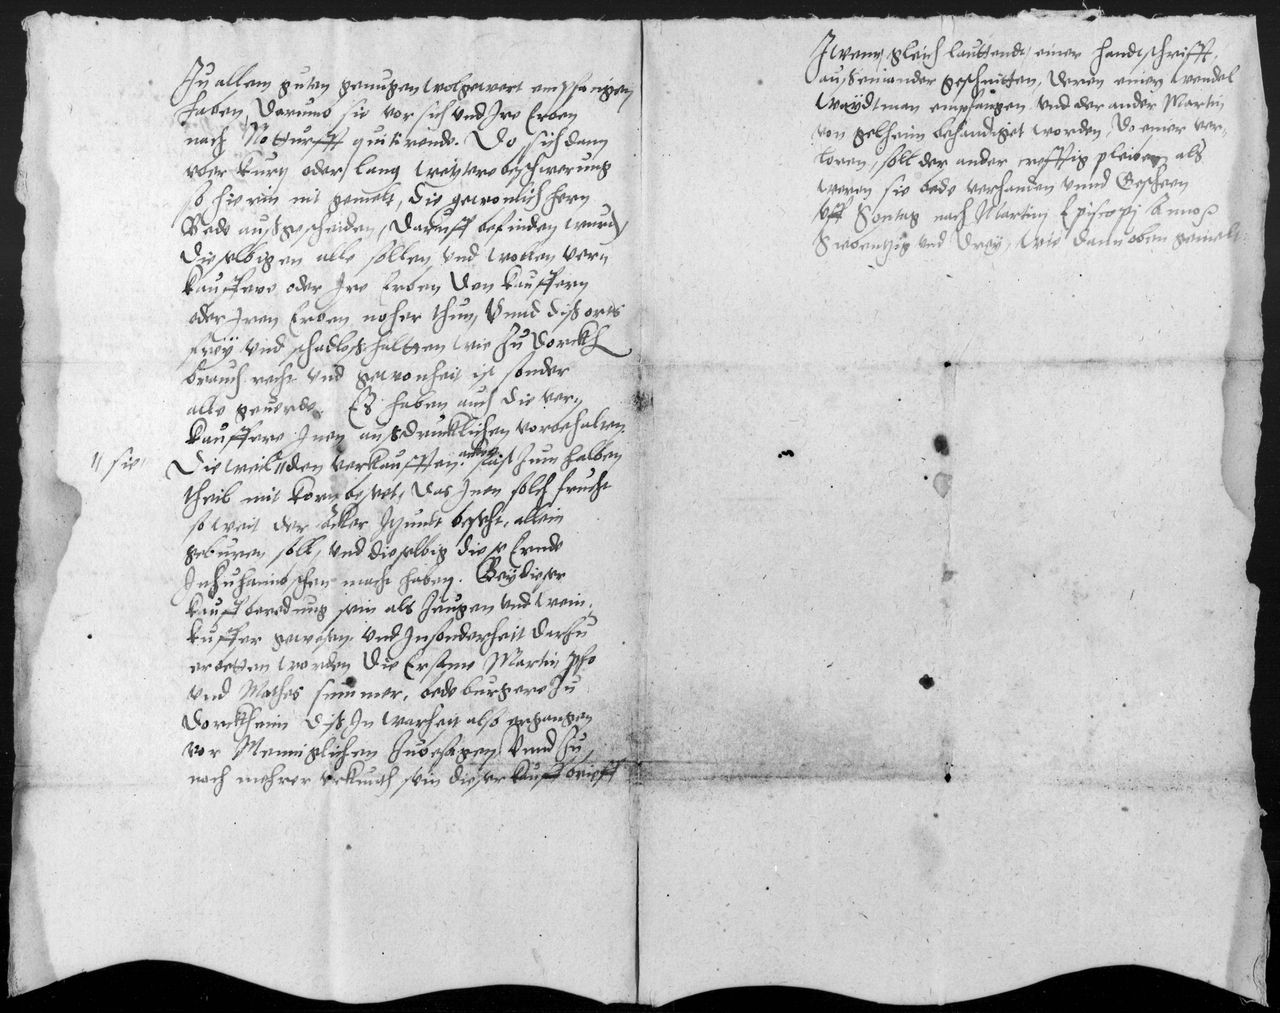 Zu allem guten genugen wolgewert empfangen
haben, Darumb sie vor sich und Ire Erben
nach Notturfft quitirende. Do sich dann
uber kurtz oder lang weytere beschwerung
so hierin nit gemelt, die gewonlich hern
Bede ausgescheiden, daruff befinden wurd,
Dieselbigen alle sollen und wollen ver-
kauffere oder Ire Erben den kauffern
oder Iren Erben noher thun, Unnd diß orts
frey und schadloß halten wie zu Dorckh
brauch recht und gewonheit ist sonder
alle geuerde. Es haben auch die ver-
kauffere Inen außdrucklichen vorbehalten.
Die weil || den verkaufften acker fast zum halben
|| sie
theil mit korn beseet, das Inen solch frucht
so weit der äcker Itzundt besehet, allein
geburen soll, und dieselbig diese Ernde
Inzuhaimbschen macht haben. Bey dieser
kauffberedung sein als Zeugen und wein-
kuffer gewesen und Insonderheit darzu
erbetten worden Die Ersame Martin
und Mathes summer, bede burgere zu
Dorckheim diß In warheit also ergangen
vor Menniglichen Zubesagen. Unnd zu
noch mehrer urkundt sein dieser kauffbrieff
Zwenn gleich lauttende, einer handtschrifft,
aus einander geschnitten, deren einen Wendel
Waydtman empfangen und der ander Martin
von gelheim behandiget worden, Do einer ver-
loren, soll der ander crefftig pleiben als
weren sie bede verhanden unnd Gescheen
uff Sontag nach Martinj Episcopj Anno
Zwoentzig und Drey, wie dann oben gemelt.